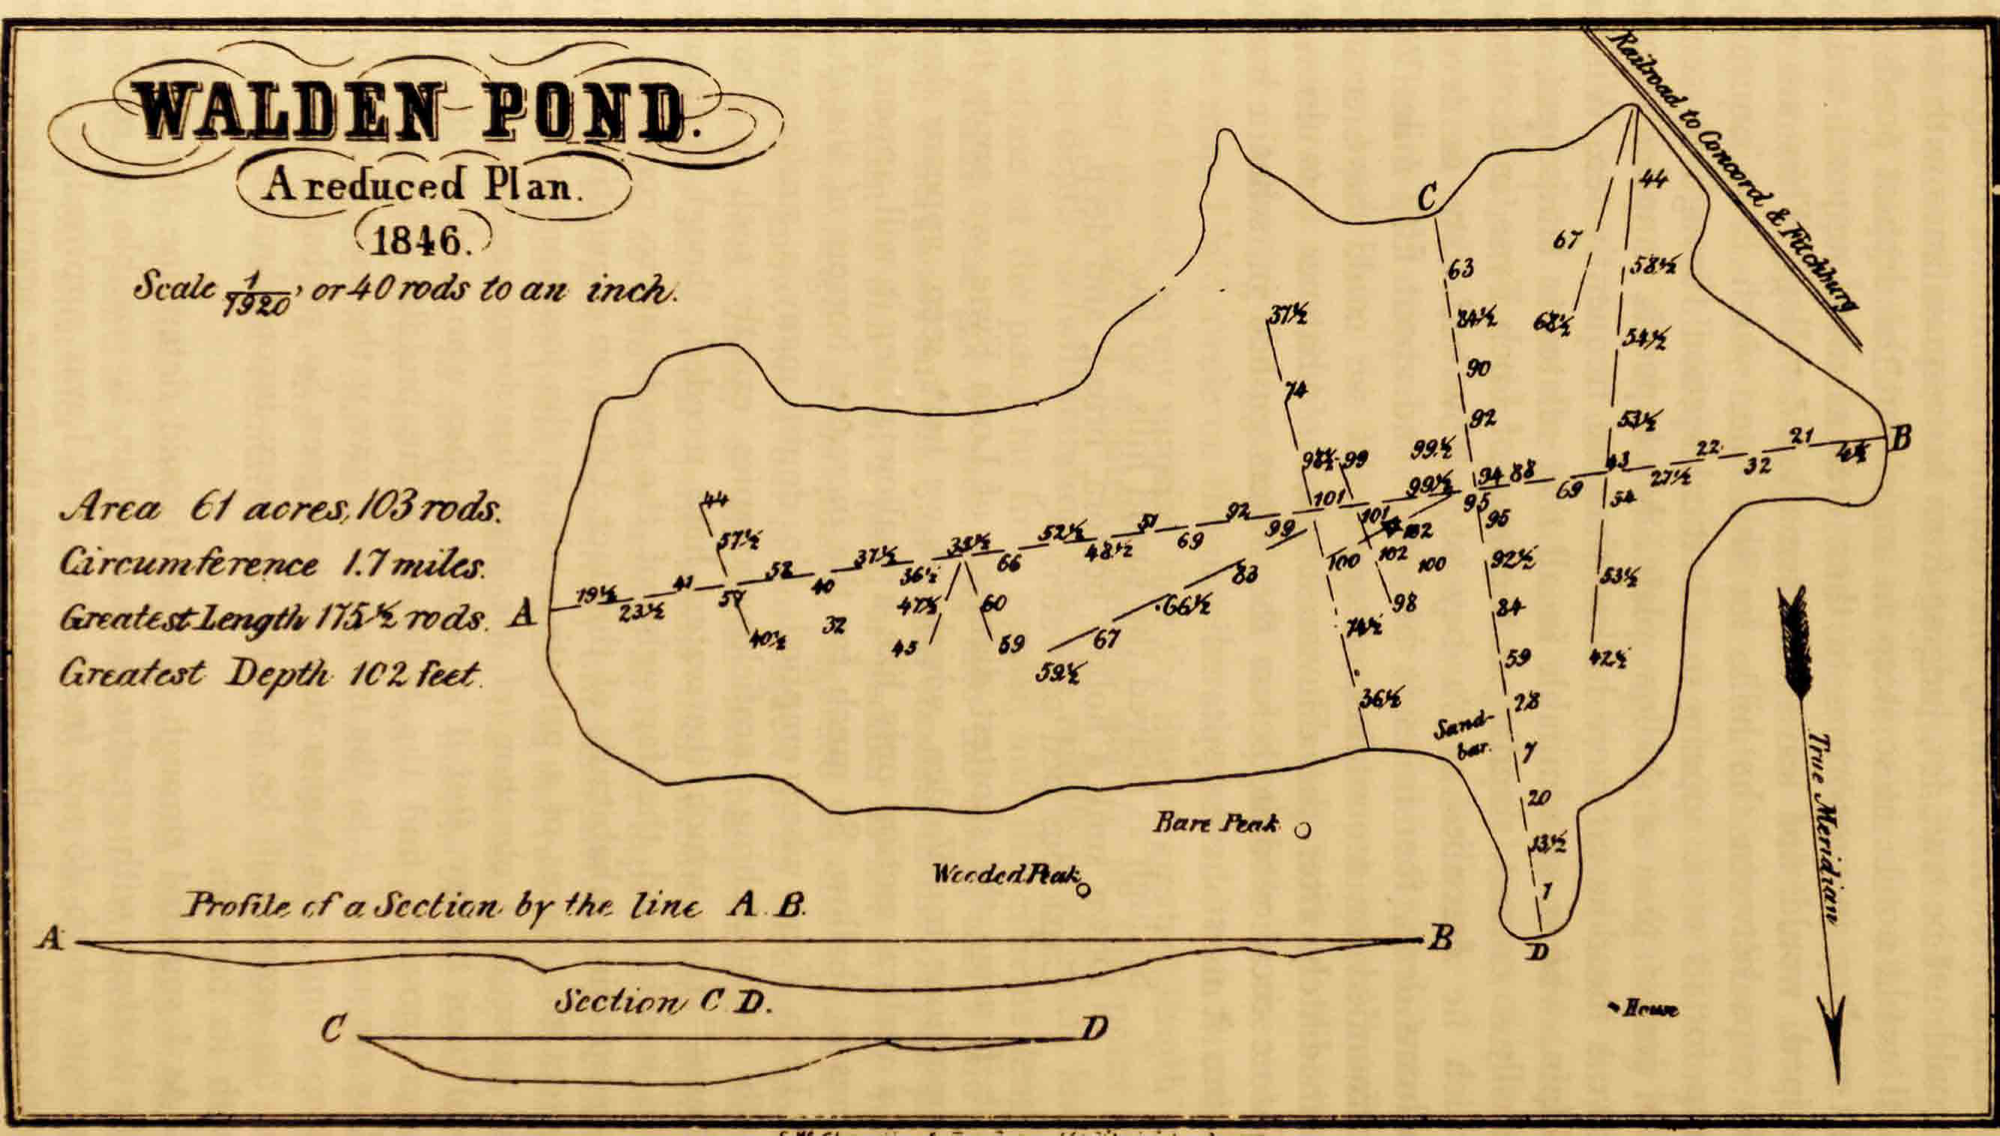 WALDEN POND.
A reduced Plan.
1846.
Scale 1/1920, or 40 rods to an inch.
Area 61 acres, 103 rods.
Circumference 1.7 miles.
Greatest Length 175½ rods.
Greatest Depth 102 feet.
Railroad to Concord & Fitchburg
C
44
67
63
58½
37½
84½
68½
54½
90
74
92
53½
99½
98½ 99
21
B
22
32
27½
43
88
94
69
99½
95
101
101
44
54
92
99
95
51
69
102
52½
48½
57½
102
100
100
92½
35½
66
37½
36½
83
53½
52
40
41
57
19½
23½
A
47½
60
66½
98
84
32
40½
45
59
67
74½
59½
59
42½
36½
28
Sand-
bar.
7
20
13½
1
D
Bare Peak
Wooded Peak
House
True Meridian
Profile of a Section by the line A. B.
A B
Section C D.
C D